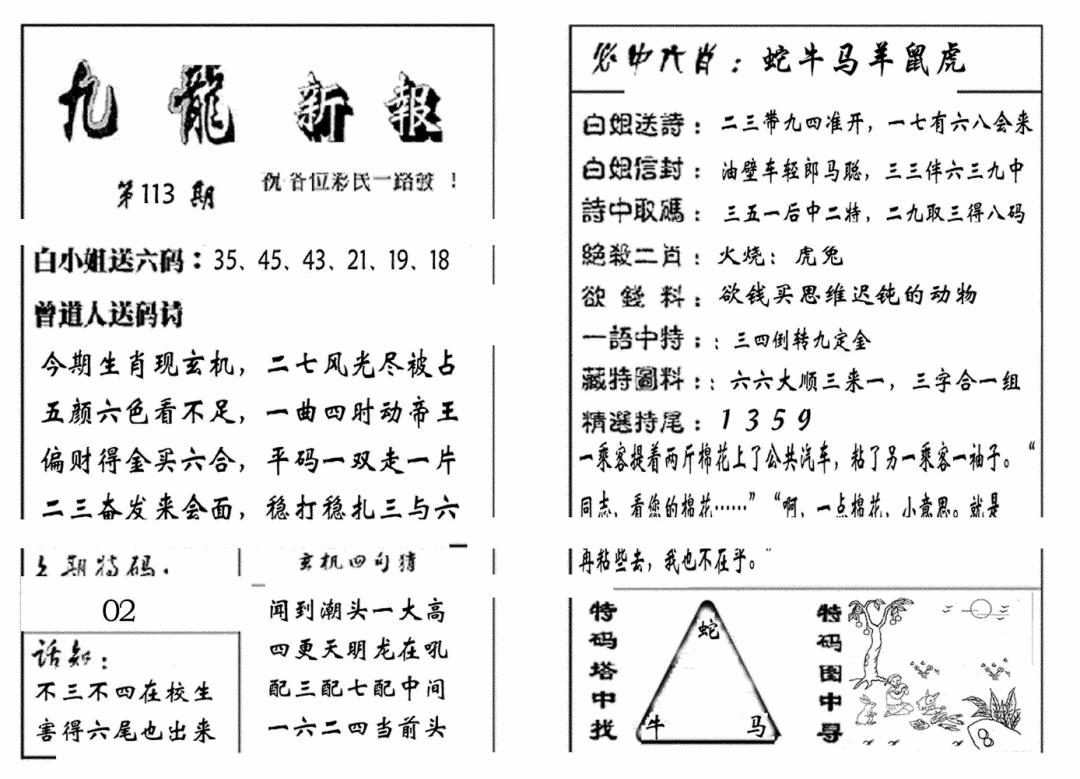 九龍新報
第113期
祝各位彩民一路發！
白小姐送六码：35、45、43、21、19、18
曾道人送码诗
今期生肖现玄机，二七风光尽被占
五颜六色看不足，一曲四时动帝王
偏财得金买六合，平码一双走一片
二三奋发来会面，稳打稳扎三与六
期特码：
02
话知：
不三不四在校生
害得六尾也出来
玄机四句猜
闻到潮头一大高
四更天明龙在吼
配三配七配中间
一六二四当前头
必中六肖：蛇牛马羊鼠虎
白姐送詩：二三带九四准开，一七有六八会来
白姐信封：油壁车轻郎马聪，三三伴六三九中
詩中取碼：三五一后中二特，二九取三得八码
絕殺二肖：火烧：虎兔
欲錢料：欲钱买思维迟钝的动物
一語中特：：三四倒转九定金
藏特圖料：：六六大顺三来一，三字合一组
精選特尾：1359
一乘客提着两斤棉花上了公共汽车，粘了另一乘客一袖子。“
同志，看您的棉花……”“啊，一点棉花，小意思。就是
再粘些去，我也不在乎。”
特码塔中找
蛇
牛
马
特码图中寻
8